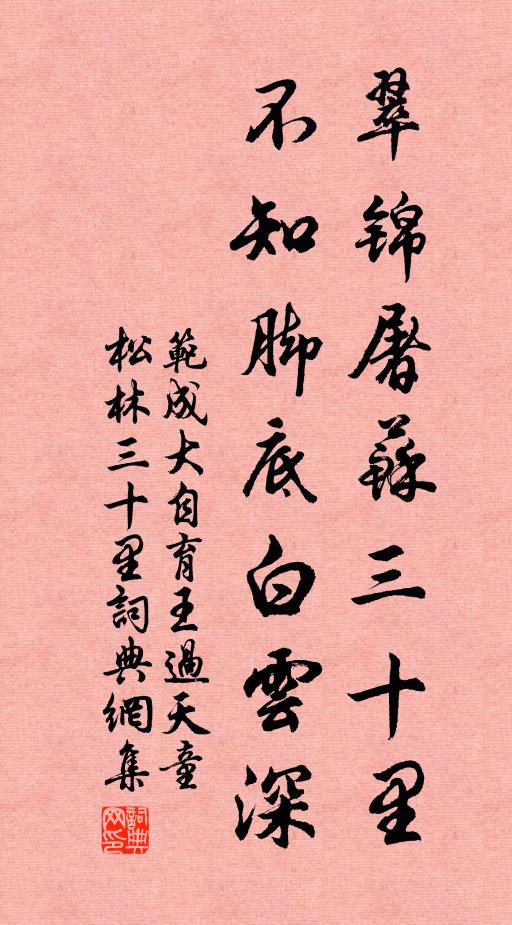 翠锦屠蘇三十里
不知脚底白雲深
範成大自育王過天童
松林三十里詞典網集
詞典网印